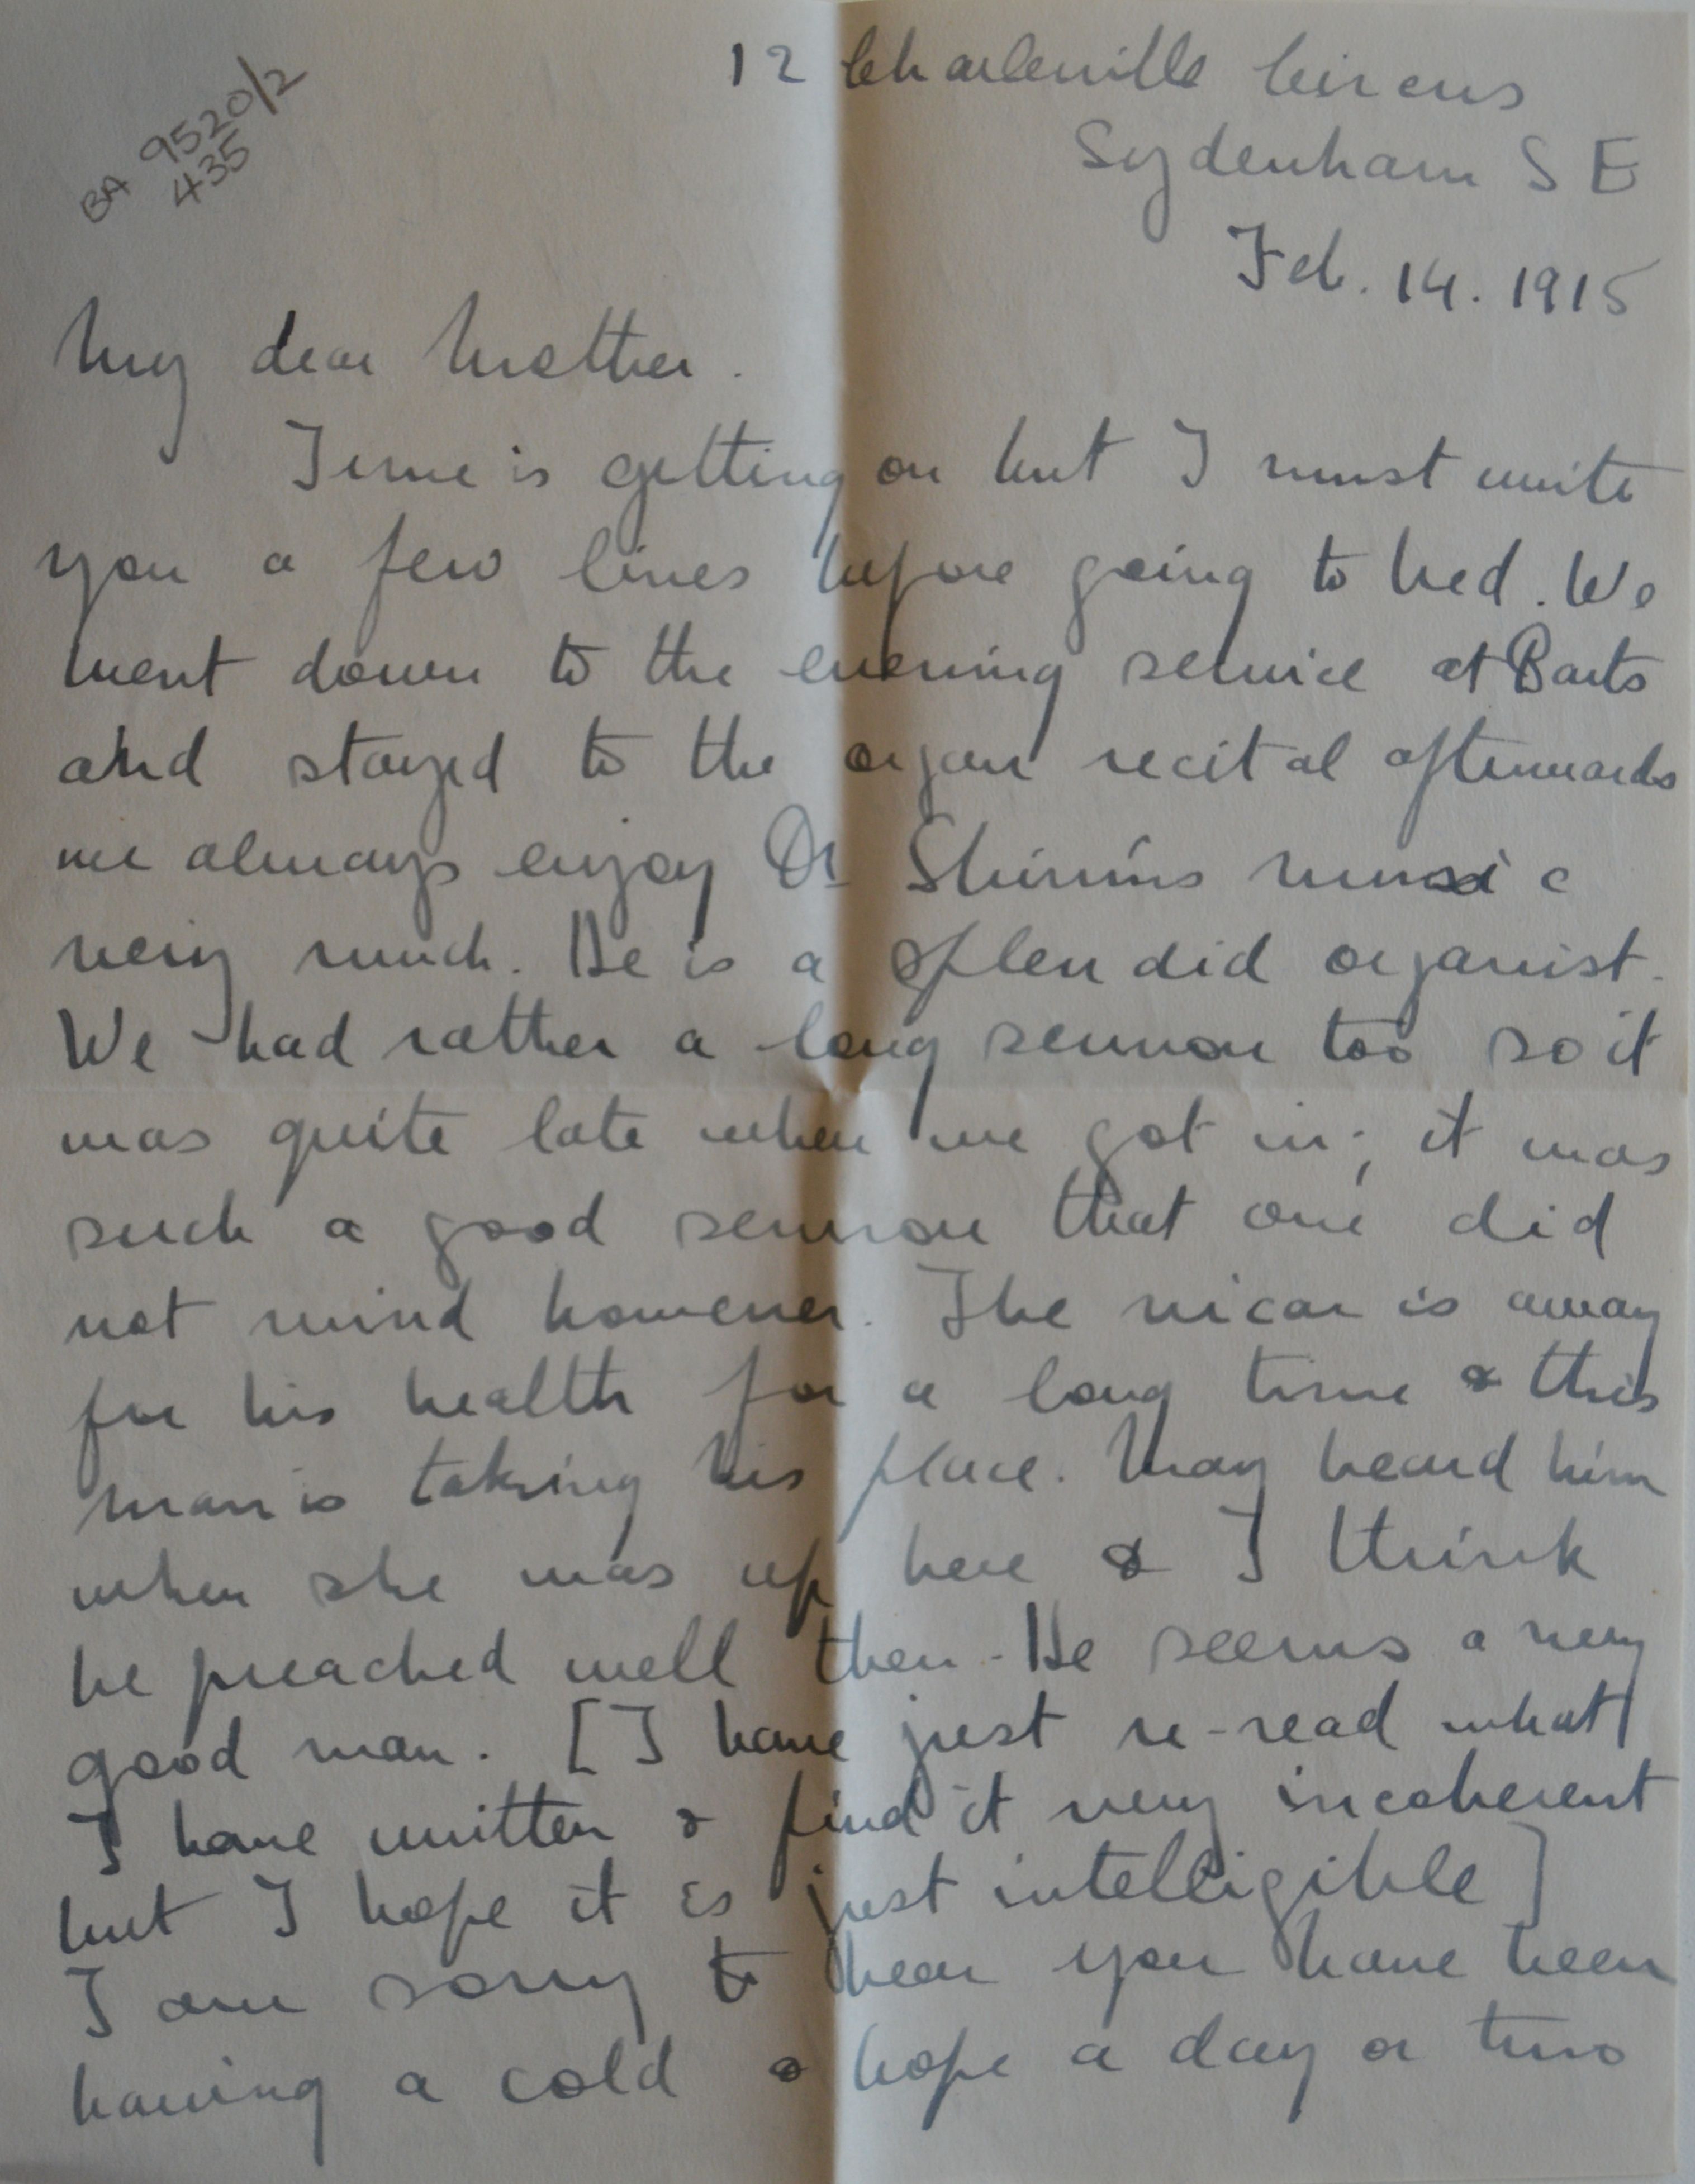 BA 9520/2
435
12 Charleville Circus
Sydenham S E
Feb. 14. 1915
My dear Mother.
Time is getting on but I must write
you a few lines before going to bed. We
went down to the evening service at Barts
and stayed to the organ recital afterwards
we always enjoy Dr music
very much. He is a splendid organist.
We had rather a long sermon too so it
was quite late when we got in; it was
such a good sermon that one did
not mind however. The vicar is away
for his health for a long time & this
man is taking his place. May heard him
when she was up here & I think
he preached well then. He seems a very
good man. [I have just re-read what
I have written & find it very incoherent
but I hope it is just intelligible]
I am sorry to hear you have been
having a cold & hope a day or two